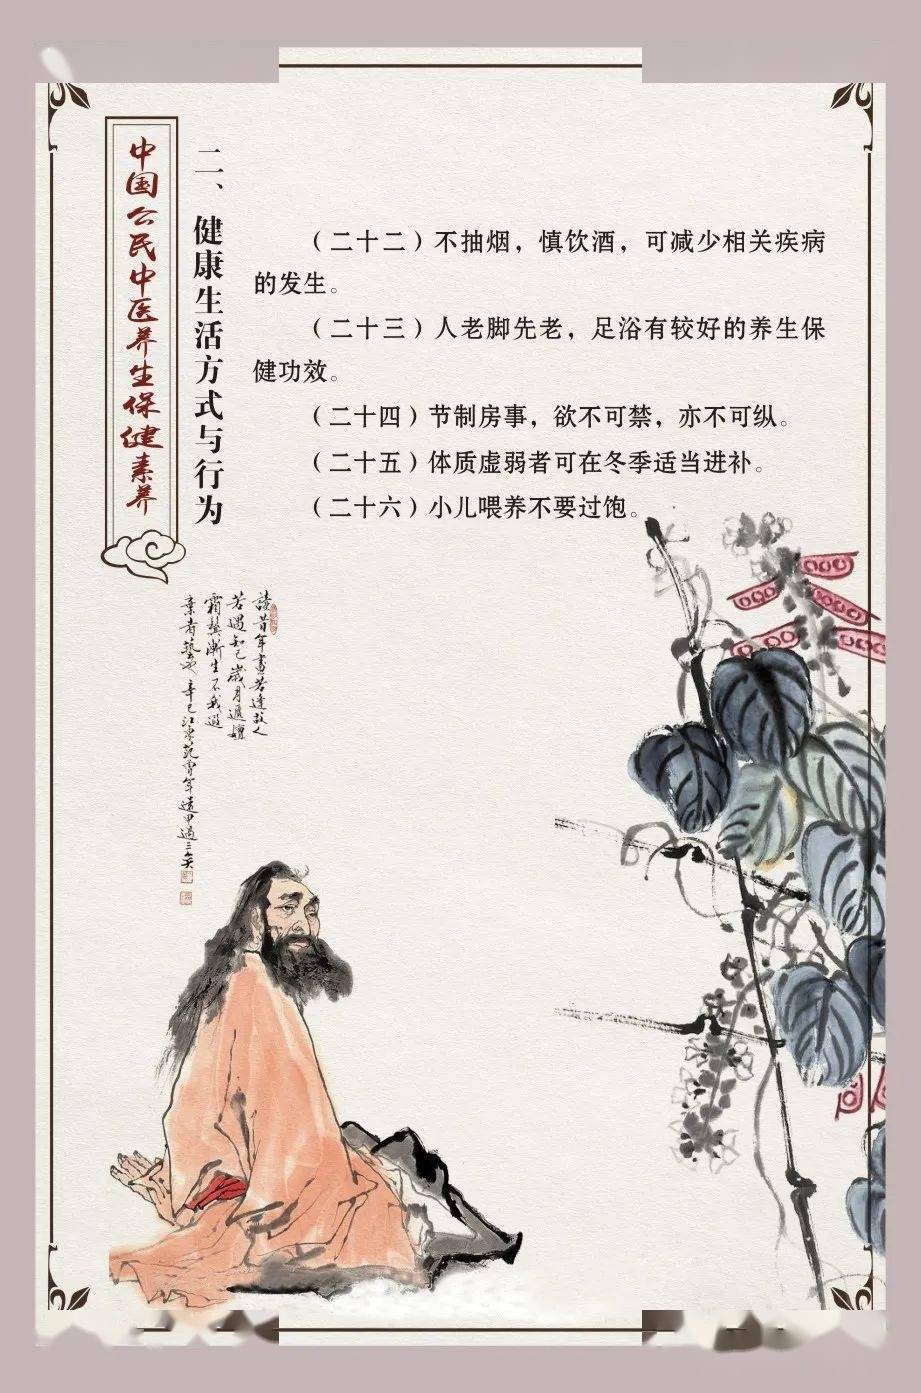 中国公民中医养生保健素养
二、健康生活方式与行为
（二十二）不抽烟，慎饮酒，可减少相关疾病
的发生。
（二十三）人老脚先老，足浴有较好的养生保
健功效。
（二十四）节制房事，欲不可禁，亦不可纵。
（二十五）体质虚弱者可在冬季适当进补。
（二十六）小儿喂养不要过饱。
读昔年畫若逢故人
若遇知己歲月遞嬗
霜鬓漸生不我遐